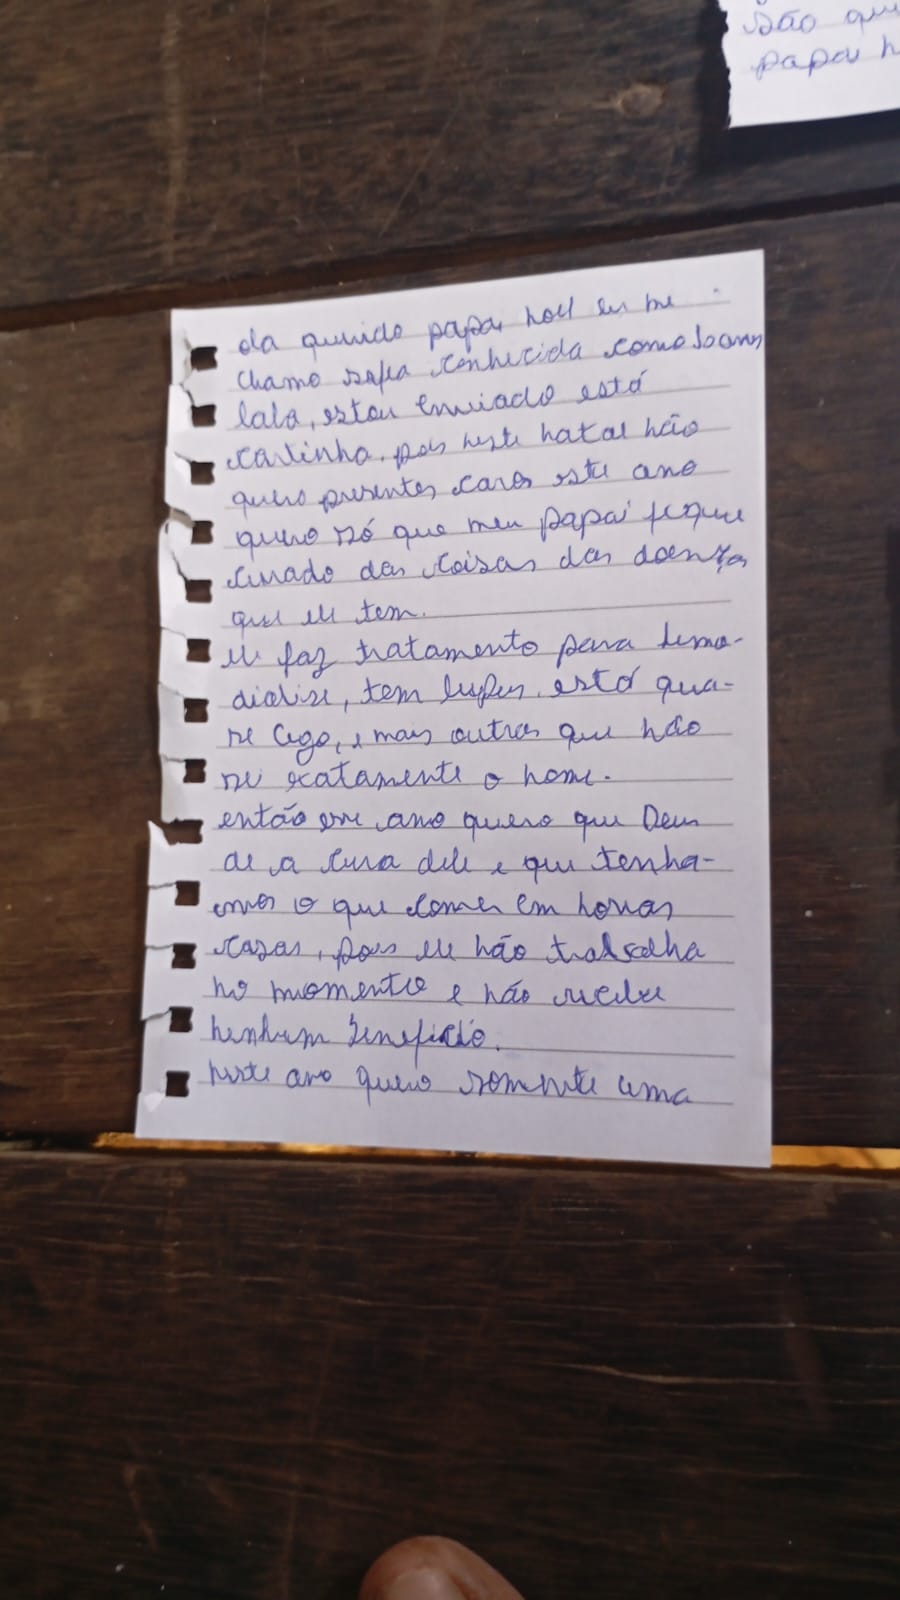 São que
papai n
ola querido papai noel eu me
chamo sofia conhecida como Joann
lala, estou enviado está
cartinha, pois neste natal não
quero presentes caros este ano
quero só que meu papai fique
curado das coisas das doenças
que ele tem.
ele faz tratamento para hemo-
dialise, tem lupus, está qua-
se cego, e mais outras que não
sei exatamente o nome.
então esse ano quero que Deus
de a cura dele e que tenha-
mos o que comer em nossas
casas, pois ele não trabalha
no momento e não recebe
nenhum beneficio.
neste ano quero somente uma